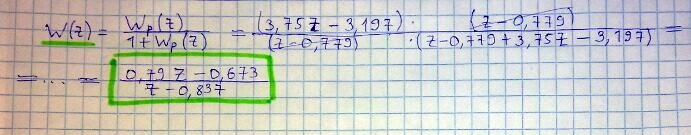 W(z) = Wp(z) / 1 + Wp(z) = (3,75z − 3,197) · (z − 0,779) / (z − 0,779) · (z − 0,779 + 3,75z − 3,197) =
= ... = 0,79z − 0,673 / z − 0,837